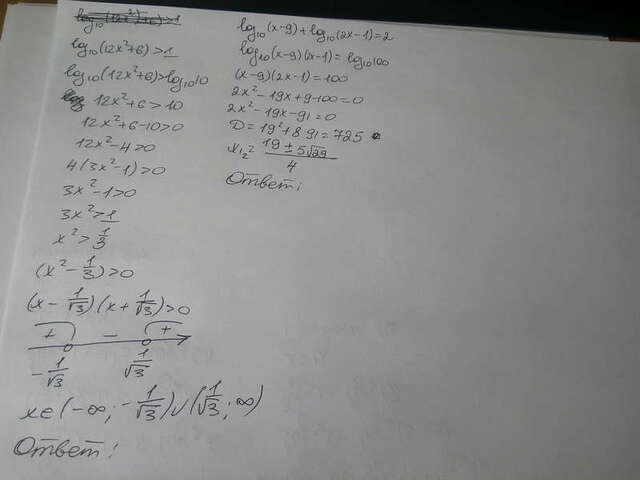 log₁₀(12x²+6)>1
log₁₀(12x²+6)>1
log₁₀(12x²+6)>log₁₀10
12x²+6>10
12x²+6-10>0
12x²-4>0
4(3x²-1)>0
3x²-1>0
3x²>1
x²>1/3
(x²-1/3)>0
(x-1/√3)(x+1/√3)>0
+ - +
-1/√3 1/√3
x∈(-∞;-1/√3)∪(1/√3;∞)
Ответ:
log₁₀(x-9)+log₁₀(2x-1)=2
log₁₀(x-9)(2x-1)=log₁₀100
(x-9)(2x-1)=100
2x²-19x+9-100=0
2x²-19x-91=0
D=19²+8·91=725
x₁,₂=(19±5√29)/4
Ответ: